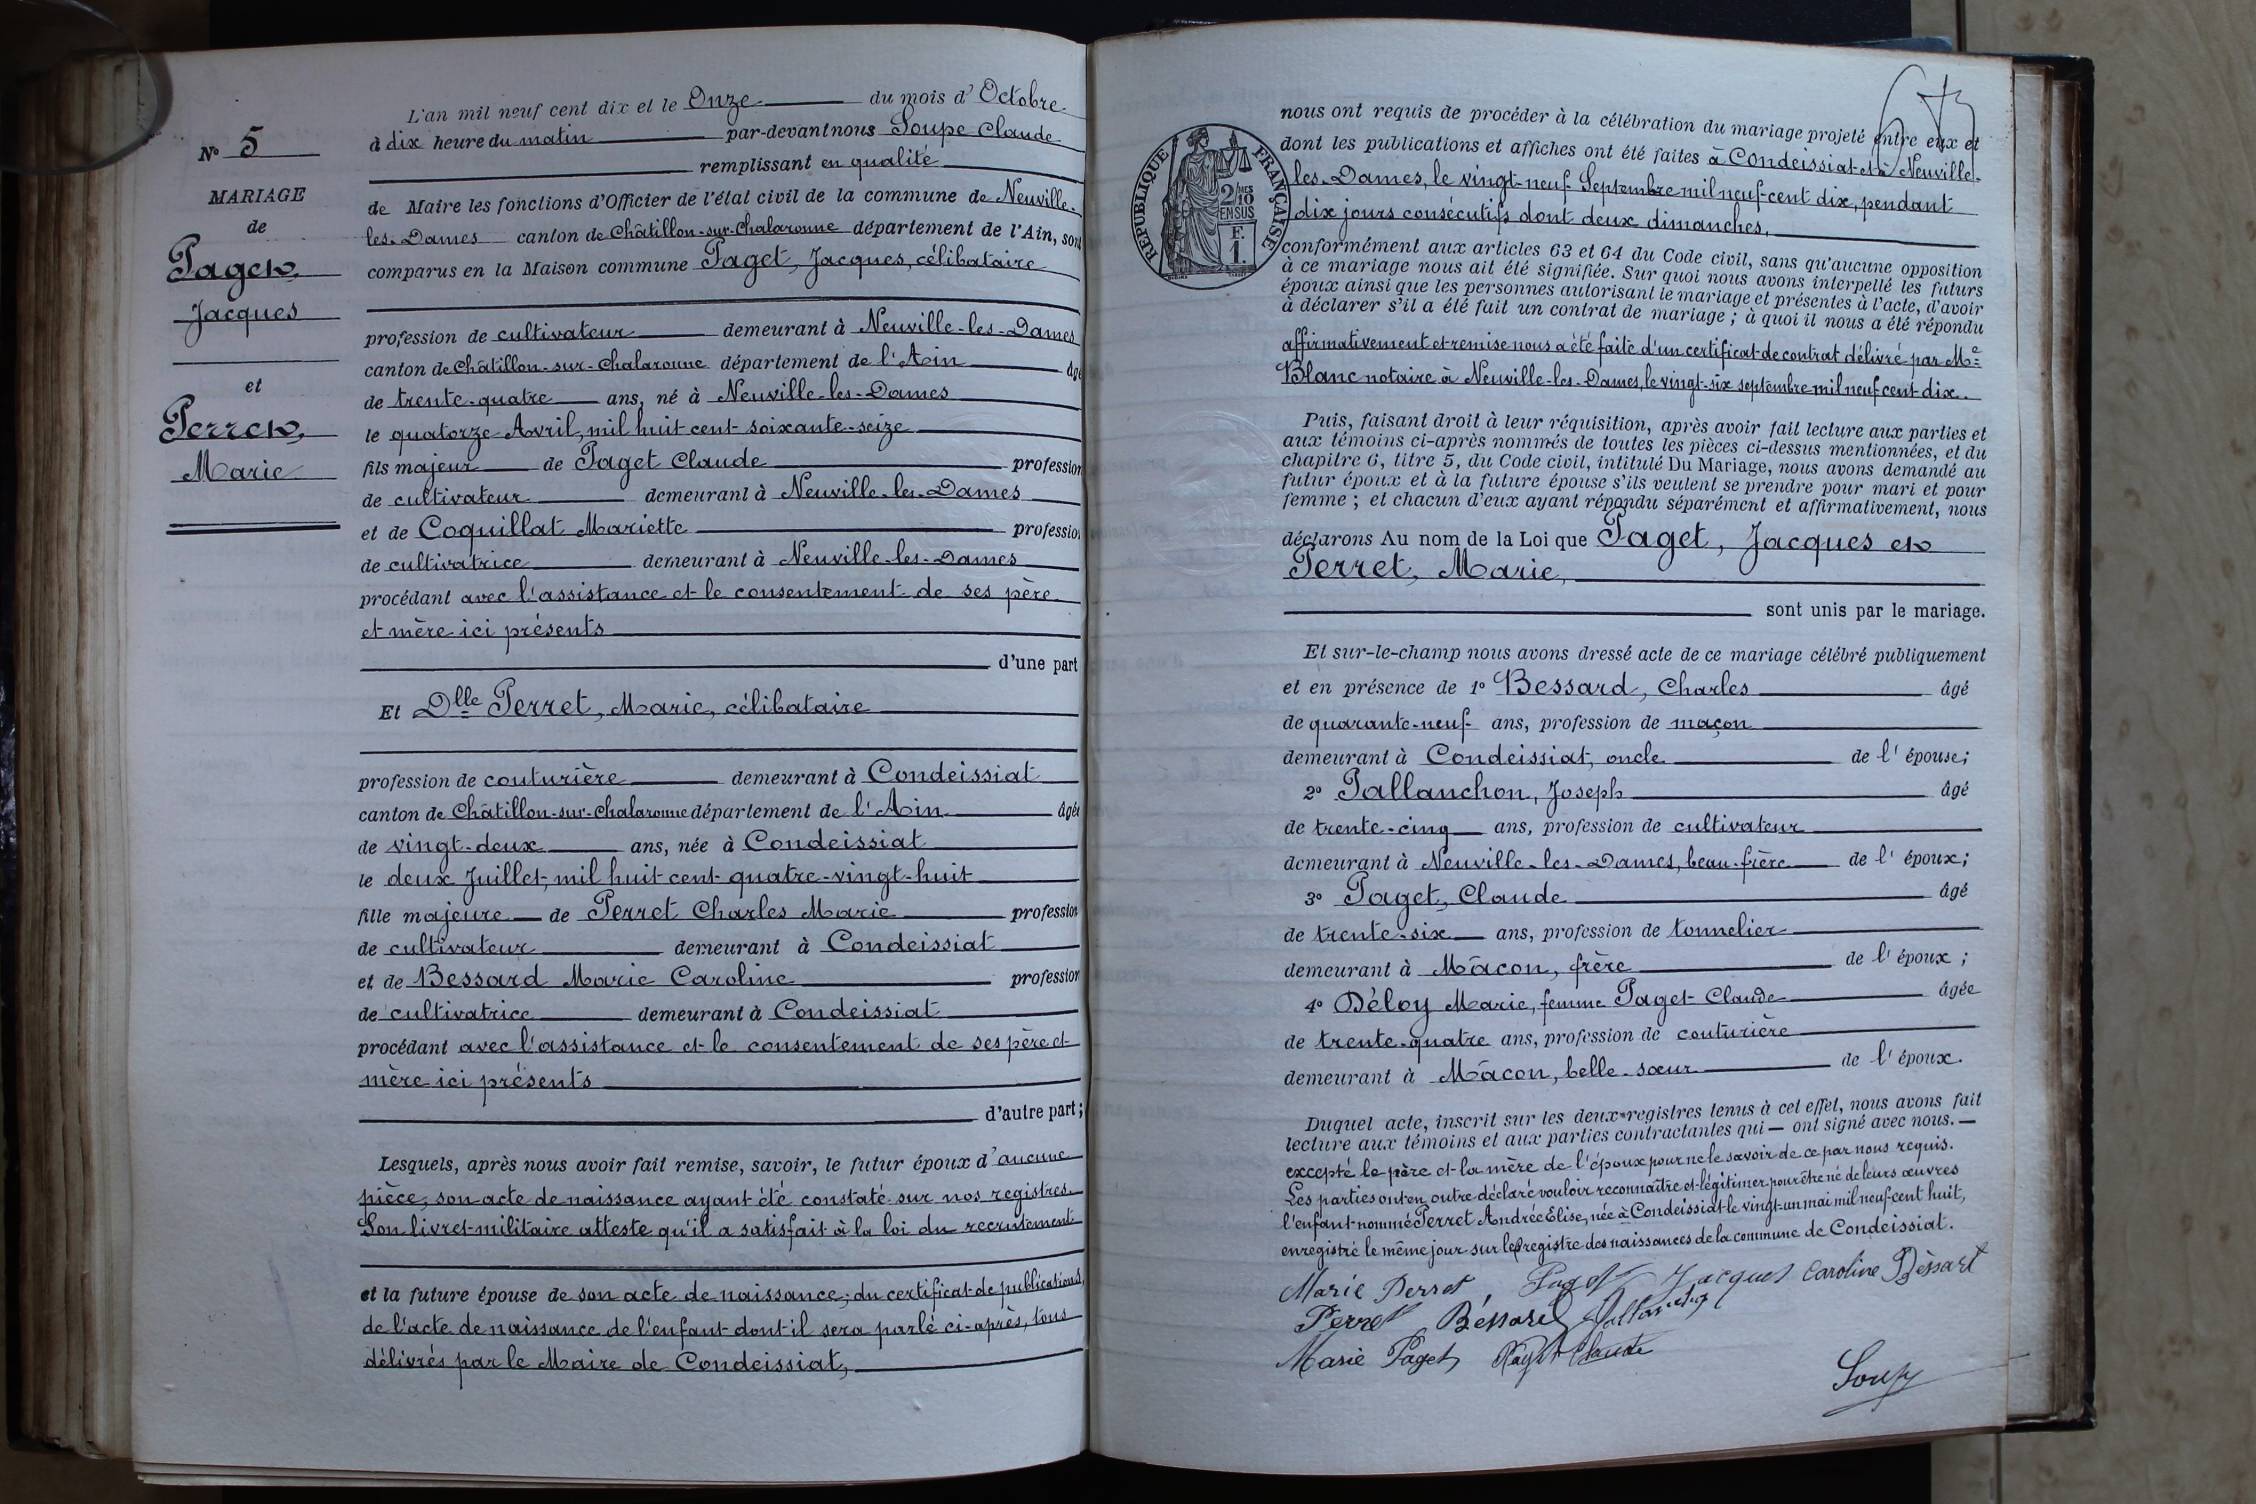 N° 5
MARIAGE
de
Paget,
Jacques
et
Perret,
Marie
L'an mil neuf cent dix et le Onze du mois d' Octobre
à dix heure du matin par-devant nous Soupe Claude
remplissant en qualité
de Maire les fonctions d'Officier de l'état civil de la commune de Neuville-
les-Dames canton de Châtillon-sur-Chalaronne département de l'Ain, sont
comparus en la Maison commune Paget, Jacques, célibataire
profession de cultivateur demeurant à Neuville-les-Dames
canton de Châtillon-sur-Chalaronne département de l'Ain âgé
de trente-quatre ans, né à Neuville-les-Dames
le quatorze Avril, mil huit cent soixante-seize
fils majeur de Paget Claude profession
de cultivateur demeurant à Neuville-les-Dames
et de Coquillat Mariette profession
de cultivatrice demeurant à Neuville-les-Dames
procédant avec l'assistance et le consentement de ses père
et mère ici présents
d'une part
Et Dlle Perret, Marie, célibataire
profession de couturière demeurant à Condeissiat
canton de Châtillon-sur-Chalaronne département de l'Ain âgée
de vingt-deux ans, née à Condeissiat
le deux Juillet, mil huit cent quatre-vingt-huit
fille majeure de Perret Charles Marie profession
de cultivateur demeurant à Condeissiat
et de Bessard Marie Caroline profession
de cultivatrice demeurant à Condeissiat
procédant avec l'assistance et le consentement de ses père et
mère ici présents
d'autre part;
Lesquels, après nous avoir fait remise, savoir, le futur époux d'aucune
pièce, son acte de naissance ayant été constaté sur nos registres.
Son livret militaire atteste qu'il a satisfait à la loi du recrutement
et la future épouse de son acte de naissance; du certificat de publications,
de l'acte de naissance de l'enfant dont il sera parlé ci-après, tous
délivrés par le Maire de Condeissiat,
RÉPUBLIQUE FRANÇAISE
2/10 MES
EN SUS
F.
1.
nous ont requis de procéder à la célébration du mariage projeté entre eux et
dont les publications et affiches ont été faites à Condeissiat et à Neuville-
les-Dames, le vingt-neuf Septembre mil neuf-cent dix, pendant
dix jours consécutifs dont deux dimanches,
conformément aux articles 63 et 64 du Code civil, sans qu'aucune opposition
à ce mariage nous ait été signifiée. Sur quoi nous avons interpellé les futurs
époux ainsi que les personnes autorisant le mariage et présentes à l'acte, d'avoir
à déclarer s'il a été fait un contrat de mariage; à quoi il nous a été répondu
affirmativement et remise nous a été faite d'un certificat de contrat délivré par Me
Blanc notaire à Neuville-les-Dames, le vingt-six septembre mil neuf cent dix.
Puis, faisant droit à leur réquisition, après avoir fait lecture aux parties et
aux témoins ci-après nommés de toutes les pièces ci-dessus mentionnées, et du
chapitre 6, titre 5, du Code civil, intitulé Du Mariage, nous avons demandé au
futur époux et à la future épouse s'ils veulent se prendre pour mari et pour
femme; et chacun d'eux ayant répondu séparément et affirmativement, nous
déclarons Au nom de la Loi que Paget, Jacques et
Perret, Marie,
sont unis par le mariage.
Et sur-le-champ nous avons dressé acte de ce mariage célébré publiquement
et en présence de 1° Bessard, Charles âgé
de quarante-neuf ans, profession de maçon
demeurant à Condeissiat, oncle de l'épouse;
2° Pallanchon, Joseph âgé
de trente-cinq ans, profession de cultivateur
demeurant à Neuville-les-Dames, beau-frère de l'époux;
3° Paget, Claude âgé
de trente-six ans, profession de tonnelier
demeurant à Mâcon, frère de l'époux;
4° Déloy Marie, femme Paget Claude âgée
de trente-quatre ans, profession de couturière
demeurant à Mâcon, belle-sœur de l'époux.
Duquel acte, inscrit sur les deux registres tenus à cet effet, nous avons fait
lecture aux témoins et aux parties contractantes qui — ont signé avec nous. —
excepté le père et la mère de l'époux pour ne le savoir de ce par nous requis.
Les parties ont en outre déclaré vouloir reconnaître et légitimer pour être né de leurs œuvres
l'enfant nommé Perret Andrée Elise, née à Condeissiat le vingt-un mai mil neuf-cent huit,
enregistré le même jour sur les registre des naissances de la commune de Condeissiat.
Marie Perret, Paget Jacques Caroline Bèssart
Perret Béssard Pallanchon
Marie Paget Paget Claude
Soupe